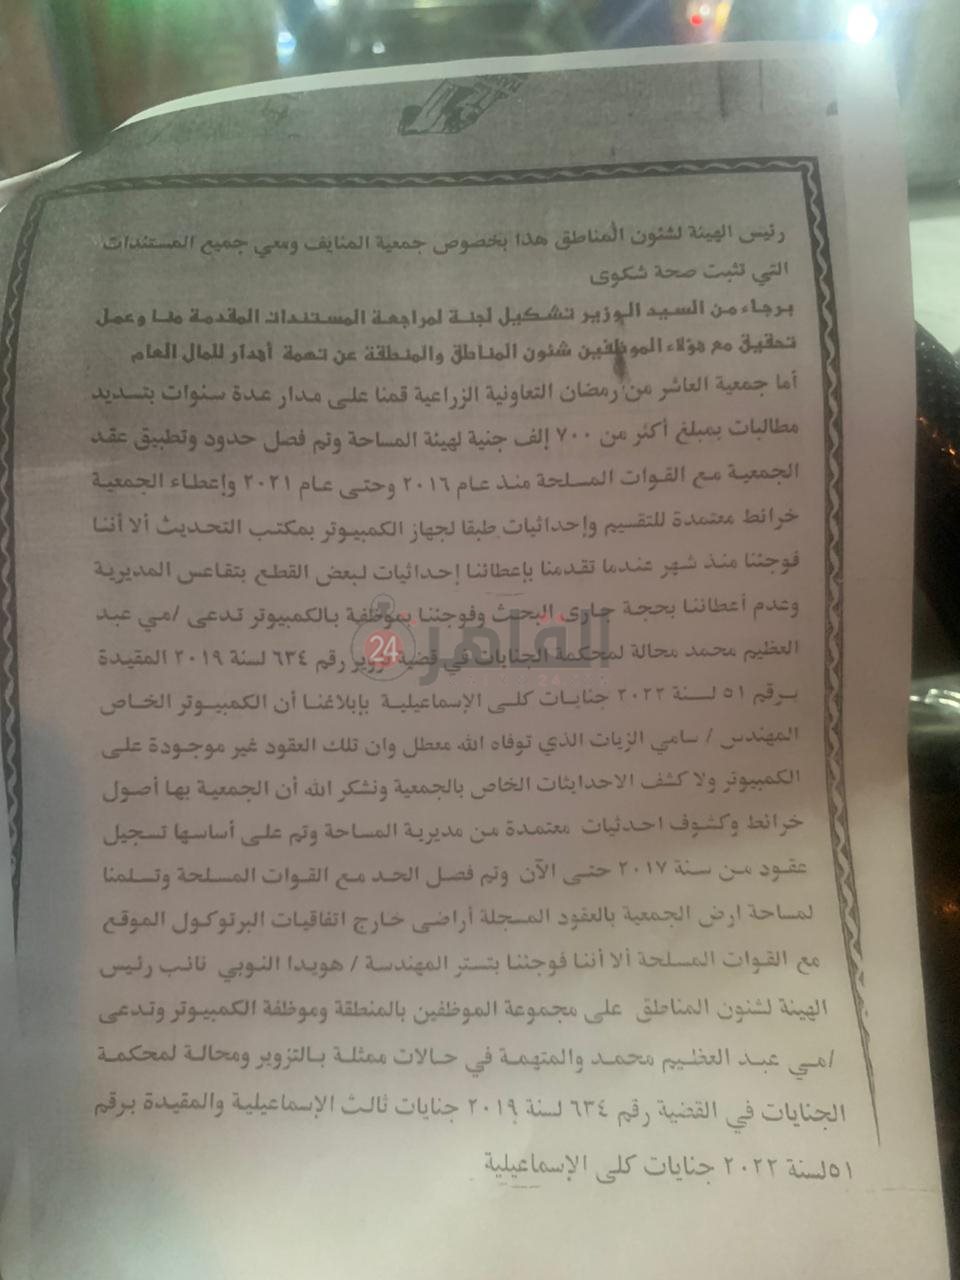 رئيس الهيئة لشئون المناطق هذا بخصوص جمعية المنايف ومعي جميع المستندات
التي تثبت صحة شكوى
برجاء من السيد الوزير تشكيل لجنة لمراجعة المستندات المقدمة منا وعمل
تحقيق مع هؤلاء الموظفين شئون المناطق والمنطقة عن تهمة أهدار للمال العام
أما جمعية العاشر من رمضان التعاونية الزراعية قمنا على مدار عدة سنوات بتسديد
مطالبات بمبلغ أكثر من ٧٠٠ إلف جنية لهيئة المساحة وتم فصل حدود وتطبيق عقد
الجمعية مع القوات المسلحة منذ عام ٢٠١٦ وحتى عام ٢٠٢١ وإعطاء الجمعية
خرائط معتمدة للتقسيم وإحداثيات طبقا لجهاز الكمبيوتر بمكتب التحديث ألا أننا
فوجئنا منذ شهر عندما تقدمنا بإعطائنا إحداثيات لبعض القطع بتقاعس المديرية
وعدم أعطائنا بحجة جارى البحث وفوجئنا بموظفة بالكمبيوتر تدعى /مي عبد
العظيم محمد محالة لمحكمة الجنايات في قضية تزوير رقم ٦٣٤ لسنة ٢٠١٩ المقيدة
برقم ٥١ لسنة ٢٠٢٢ جنايات كلى الإسماعيلية بإبلاغنا أن الكمبيوتر الخاص
المهندس / سامي الزيات الذي توفاه الله معطل وان تلك العقود غير موجودة على
الكمبيوتر ولا كشف الاحداثيات الخاص بالجمعية ونشكر الله أن الجمعية بها أصول
خرائط وكشوف احدثيات معتمدة من مديرية المساحة وتم على أساسها تسجيل
عقود من سنة ٢٠١٧ حتى الآن وتم فصل الحد مع القوات المسلحة وتسلمنا
لمساحة ارض الجمعية بالعقود المسجلة أراضى خارج اتفاقيات البرتوكول الموقع
مع القوات المسلحة ألا أننا فوجئنا بتستر المهندسة / هويدا النوبي نائب رئيس
الهيئة لشئون المناطق على مجموعة الموظفين بالمنطقة وموظفة الكمبيوتر وتدعى
/مي عبد العظيم محمد والمتهمة في حالات ممثلة بالتزوير ومحالة لمحكمة
الجنايات في القضية رقم ٦٣٤ لسنة ٢٠١٩ جنايات ثالث الإسماعيلية والمقيدة برقم
٥١لسنة ٢٠٢٢ جنايات كلى الإسماعيلية
القاهرة 24